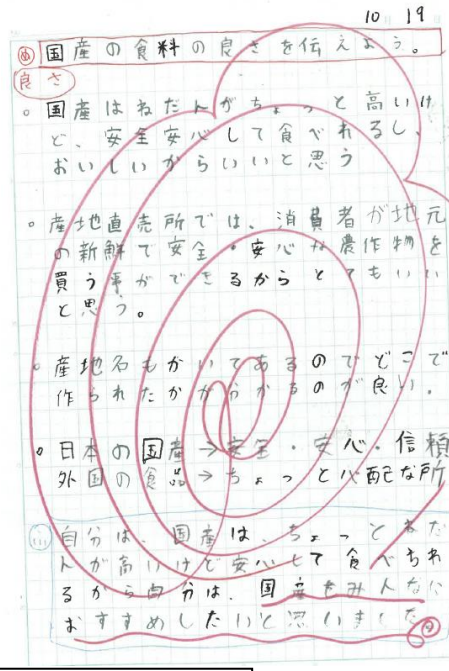 10 19
め 国産の食料の良さを伝えよう。
良さ
。国産はねだんがちょっと高いけ
ど、安全安心して食べれるし、
おいしいからいいと思う
。産地直売所では、消費者が地元
の新鮮で安全・安心な農作物を
買う事ができるからとてもいい
と思う。
。産地名もかいてあるのでどこで
作られたかがわかるのが良い。
。日本の国産→安全・安心・信頼
外国の食品→ちょっと心配な所
自分は、国産は、ちょっとねだ
んが高いけど安心して食べられ
るから自分は、国産をみんなに
おすすめしたいと思いました。